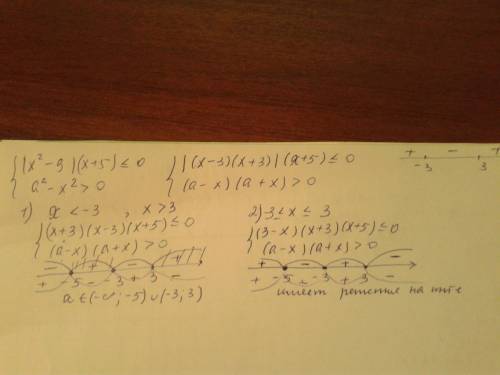 { |x² - 9|(x+5) ≤ 0
a² - x² > 0
{ |(x-3)(x+3)|(x+5) ≤ 0
(a-x)(a+x) > 0
+ - +
-3 3
1) x < -3 , x > 3
{ (x+3)(x-3)(x+5) ≤ 0
(a-x)(a+x) > 0
- + - +
+ -5 - -3 + 3 -
a ∈ (-∞; -5) ∪ (-3; 3)
2) -3 ≤ x ≤ 3
{ (3-x)(x+3)(x+5) ≤ 0
(a-x)(a+x) > 0
+ - + -
+ -5 - -3 + 3 -
имеет решение на